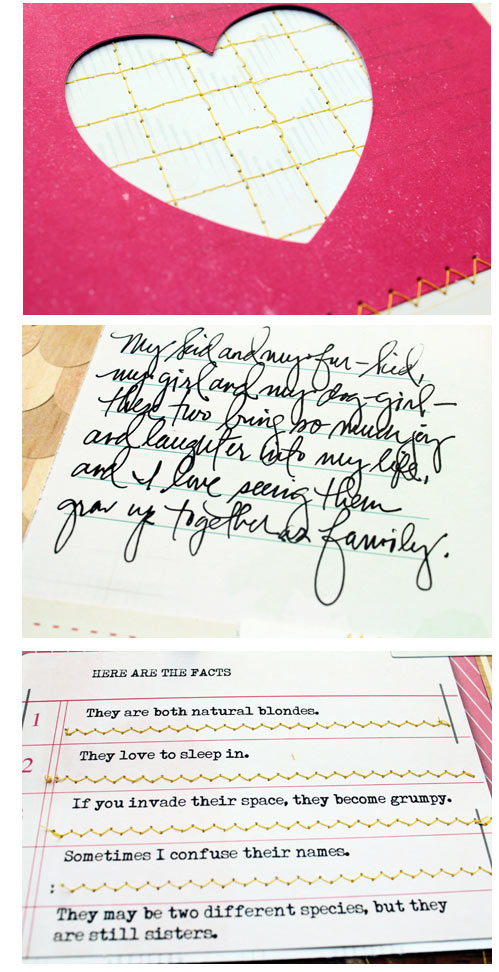 My kid and my fur-kid,
my girl and my dog-girl—
these two bring so much joy
and laughter into my life,
and I love seeing them
grow up together as family.
HERE ARE THE FACTS
1 They are both natural blondes.
2 They love to sleep in.
If you invade their space, they become grumpy.
Sometimes I confuse their names.
:
They may be two different species, but they
are still sisters.